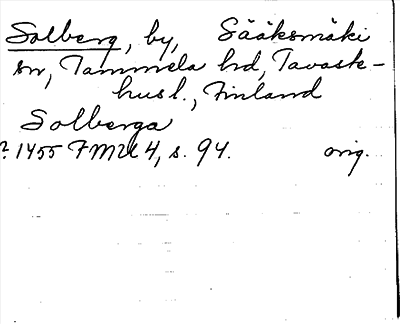 Solberg, by, Sääksmäki
sn, Tammela hd, Tavaste-
husl., Finland
Solberga
? 1455 FMU 4, s. 94. orig.